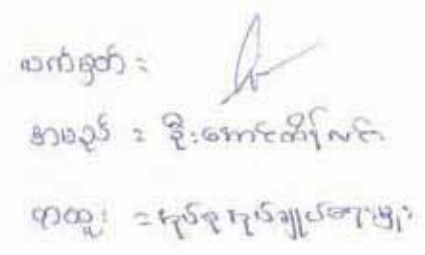 လက်မှတ် :
အမည် : ဦးအောင်ကိန်လင်း
ရာထူး : အုပ်စုအုပ်ချုပ်ရေးမှူး